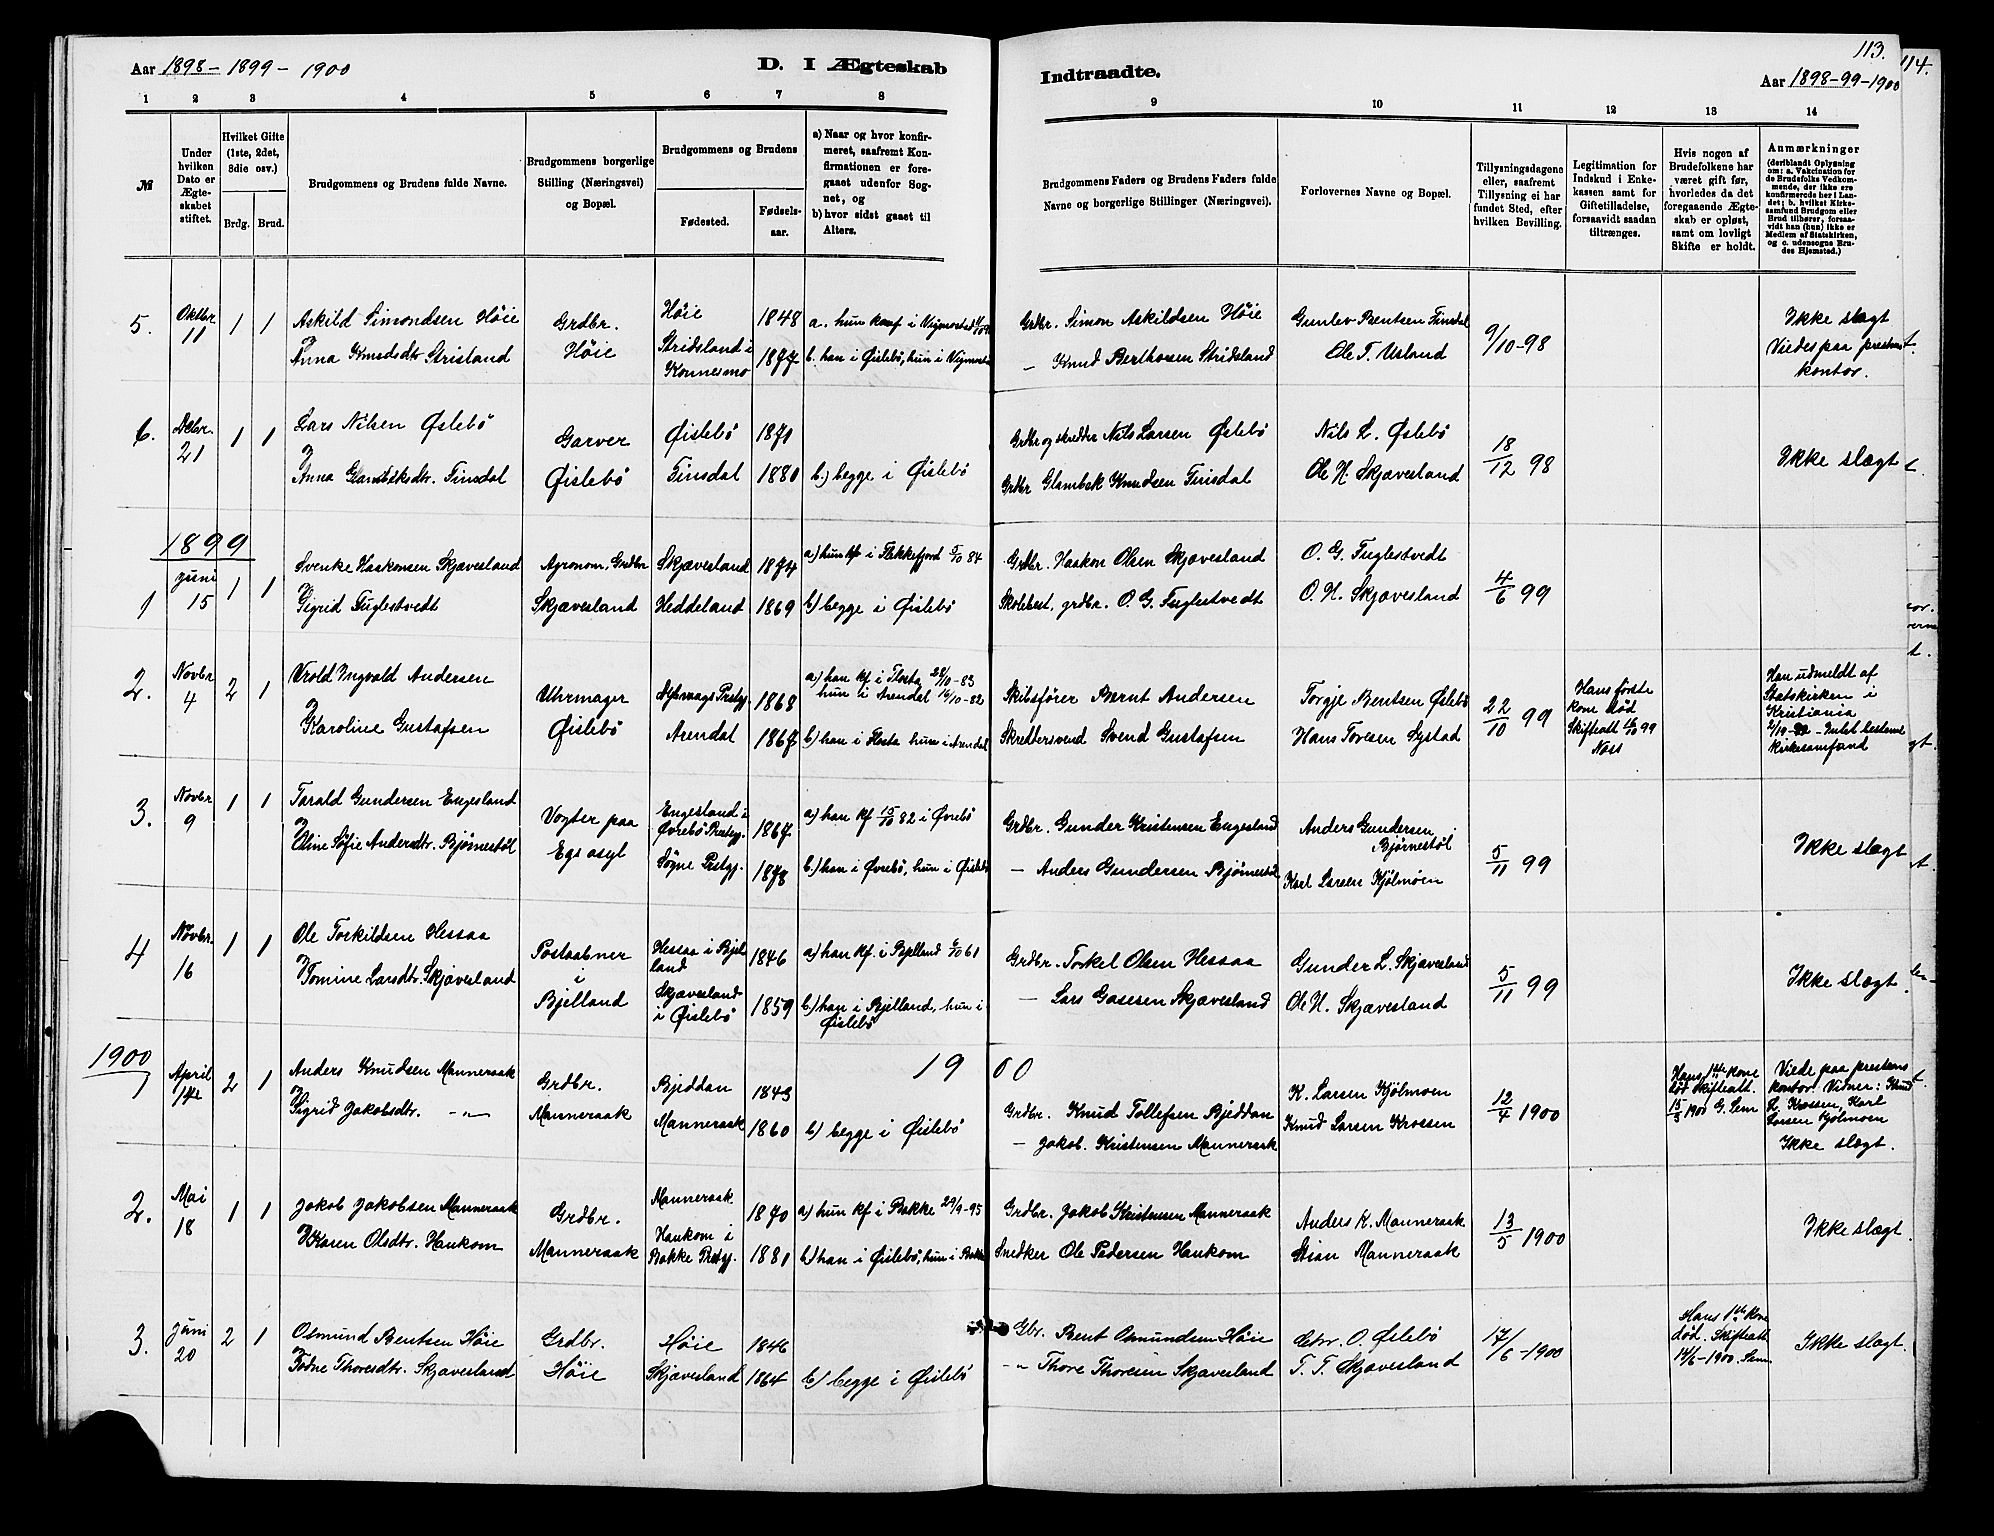 113.
114.
Aar 1898 - 1899 - 1900
D. I Ægteskab
Indtraadte.
Aar 1898-99-1900
1 2 3 4 5 6 7 8 9 10 11 12 13 14
№
Under hvilken Dato er Ægteskabet stiftet.
Hvilket Gifte (1ste, 2det, 3die osv.)
Brdg. Brud.
Brudgommens og Brudens fulde Navne.
Brudgommens borgerlige Stilling (Næringsvei) og Bopæl.
Brudgommens og Brudens
Fødested. Fødselsaar.
a) Naar og hvor konfirmeret, saafremt Konfirmationen er foregaaet udenfor Sognet, og
b) hvor sidst gaaet til Alters.
Brudgommens Faders og Brudens Faders fulde Navne og borgerlige Stillinger (Næringsvei).
Forlovernes Navne og Bopæl.
Tillysningsdagene eller, saafremt Tillysning ei har fundet Sted, efter hvilken Bevilling.
Legitimation for Indskud i Enkekassen samt for Giftetilladelse, forsaavidt saadan tiltrænges.
Hvis nogen af Brudefolkene har været gift før, hvorledes da det foregaaende Ægteskab er opløst, samt om lovligt Skifte er holdt.
Anmærkninger
(deriblandt Oplysning om: a. Vakcination for de Brudefolks Vedkommende, der ikke ere konfirmerede her i Landet; b. hvilket Kirkesamfund Brudgom eller Brud tilhører, forsaavidt han (hun) ikke er Medlem af Statskirken, og c. udensogns Brudes Hjemsted.)
5. Oktbr. 11 1 1
Askild Simondsen Høie
Anna Knudsdtr. Strisland
Grdbr. Høie
Høie 1848
Stridsland i Konnesmo 1877
a. hun konf i Vigmostad
b. han i Øislebö, hun i Vigmostad
Grdbr. Simon Askildsen Höie
— Knud Berthosen Stridsland
Gunlev Bentsen Tinsdal
Ole T. Usland
9/10-98
Ikke slægt
Viedes paa prestens kontor.
6. Debr. 21 1 1
Lars Nilsen Øslebö
Anna Glambeksdtr. Tinsdal
Garver Øislebö
Øislebö 1871
Tinsdal 1880
b.) begge i Øislebö
Grdbr og skredder Nils Larsen Øslebö
Grdbr Glambek Knudsen Tinsdal
Nils L. Øslebö
Ole H. Skjævesland
18/12 98
Ikke slægt
1899
1 Juni 15 1 1
Svenke Haakonsen Skjævesland
Sigrid Fuglestvedt
Agronom, Grdbr Skjævesland
Skjævesland 1874
Heddeland 1869
a) hun kf i Flekkefjord 5/10 84
b) begge i Øislebö
Grdbr. Haakon Olsen Skjævesland
Skolebest, grdbr. O. G. Fuglestvedt
O. G. Fuglestvedt
O. H. Skjævesland
4/6 99
2. Novbr 4 2 1
Arold Ingvald Andersen
Karoline Gustafsen
Uhrmager Øislebö
Dybvaags Prestgj. 1868
Arendal 1867
a) han kf i Flosta 28/10-83
hun i Arendal 16/10-82
b) han i Flosta hun i Arendal
Skibsfører Bernt Andersen
Skreddersvend Svend Gustafsen
Torgje Bentsen Øslebö
Hans Toresen Systad
22/10 99
Hans første kone död
Skifteatt 16/10 99
Næss
Han udmeldt af Statskirken i Kristiania
2/10-92 - Intet bestemt kirkesamfund
3. Novbr 9 1 1
Tarald Gundersen Eugesland
Oline Søfie Andersdtr. Bjørnestöl
Vogter paa Egs asyl
Eugesland i Øvrebö Prestgj. 1867
Søgne Prestgj. 1878
a) han kf 15/10 82 i Øvrebö
b.) han i Øvrebö, hun i Øislebö
Grdbr. Gunder Kristensen Eugesland
— Anders Gundersen Bjørnestöl
Anders Gundersen Bjørnestöl
Karl Larsen Kjölmoen
5/11 99
Ikke slægt
4 Novbr. 16 1 1
Ole Torkildsen Hessaa
Tomine Larsdtr. Skjævesland
Postaabner i Bjelland
Hessaa i Bjelland 1846
Skjævesland i Øislebö 1859
a) han kf. i Bjelland 6/10 61
b) han i Bjelland, hun i Øislebö
Grdbr. Torkel Olsen Hessaa
— Lars Gasesen Skjævesland
Gunder L. Skjævesland
Ole H. Skjævesland
5/11 99
Ikke slægt
1900
1900
1 April 14de 2 1
Anders Knudsen Manneraak
Sigrid Jakobsdtr. —"—
Grdbr. Manneraak
Bjeddan 1843
Manneraak 1860
b) begge i Øislebö
Grdbr. Knud Tollefsen Bjeddan
— Jakob. Kristensen Manneraak
K. Larsen Kjölmoen
Knud Larsen Krossen
12/4 1900
Hans 1ste kone död Skifteatt. 15/3 1900 G. Sem
Viede paa prestens kontor. Vidner: Knud L. Krossen, Karl Larsen Kjölmoen
Ikke slægt.
2. Mai 18 1 1
Jakob Jakobsen Manneraak
Karen Olsdtr. Haukom
Grdbr. Manneraak
Manneraak 1870
Haukom i Bakke Prestgj. 1881
a) hun kf i Bakke 29/9-95
b) han i Øislebö, hun i Bakke
Grdbr. Jakob Kristensen Manneraak
Snedker Ole Pedersen Haukom
Anders K. Manneraak
Stian Manneraak
13/5 1900
Ikke slægt
3. Juni 20 2 1
Osmund Bentsen Høie
Todne Thoresdtr. Skjævesland
Grdbr. Høie
Høie 1846
Skjævesland 1864
b) begge i Øislebö
Gbr. Bent Osmundsen Høie
—"— Thore Thoresen Skjævesland
Chr. O. Øslebö
T. T. Skjævesland
17/6-1900
Hans 1ste kone död. Skifteatt 14/6-1900. Sem
Ikke slægt.